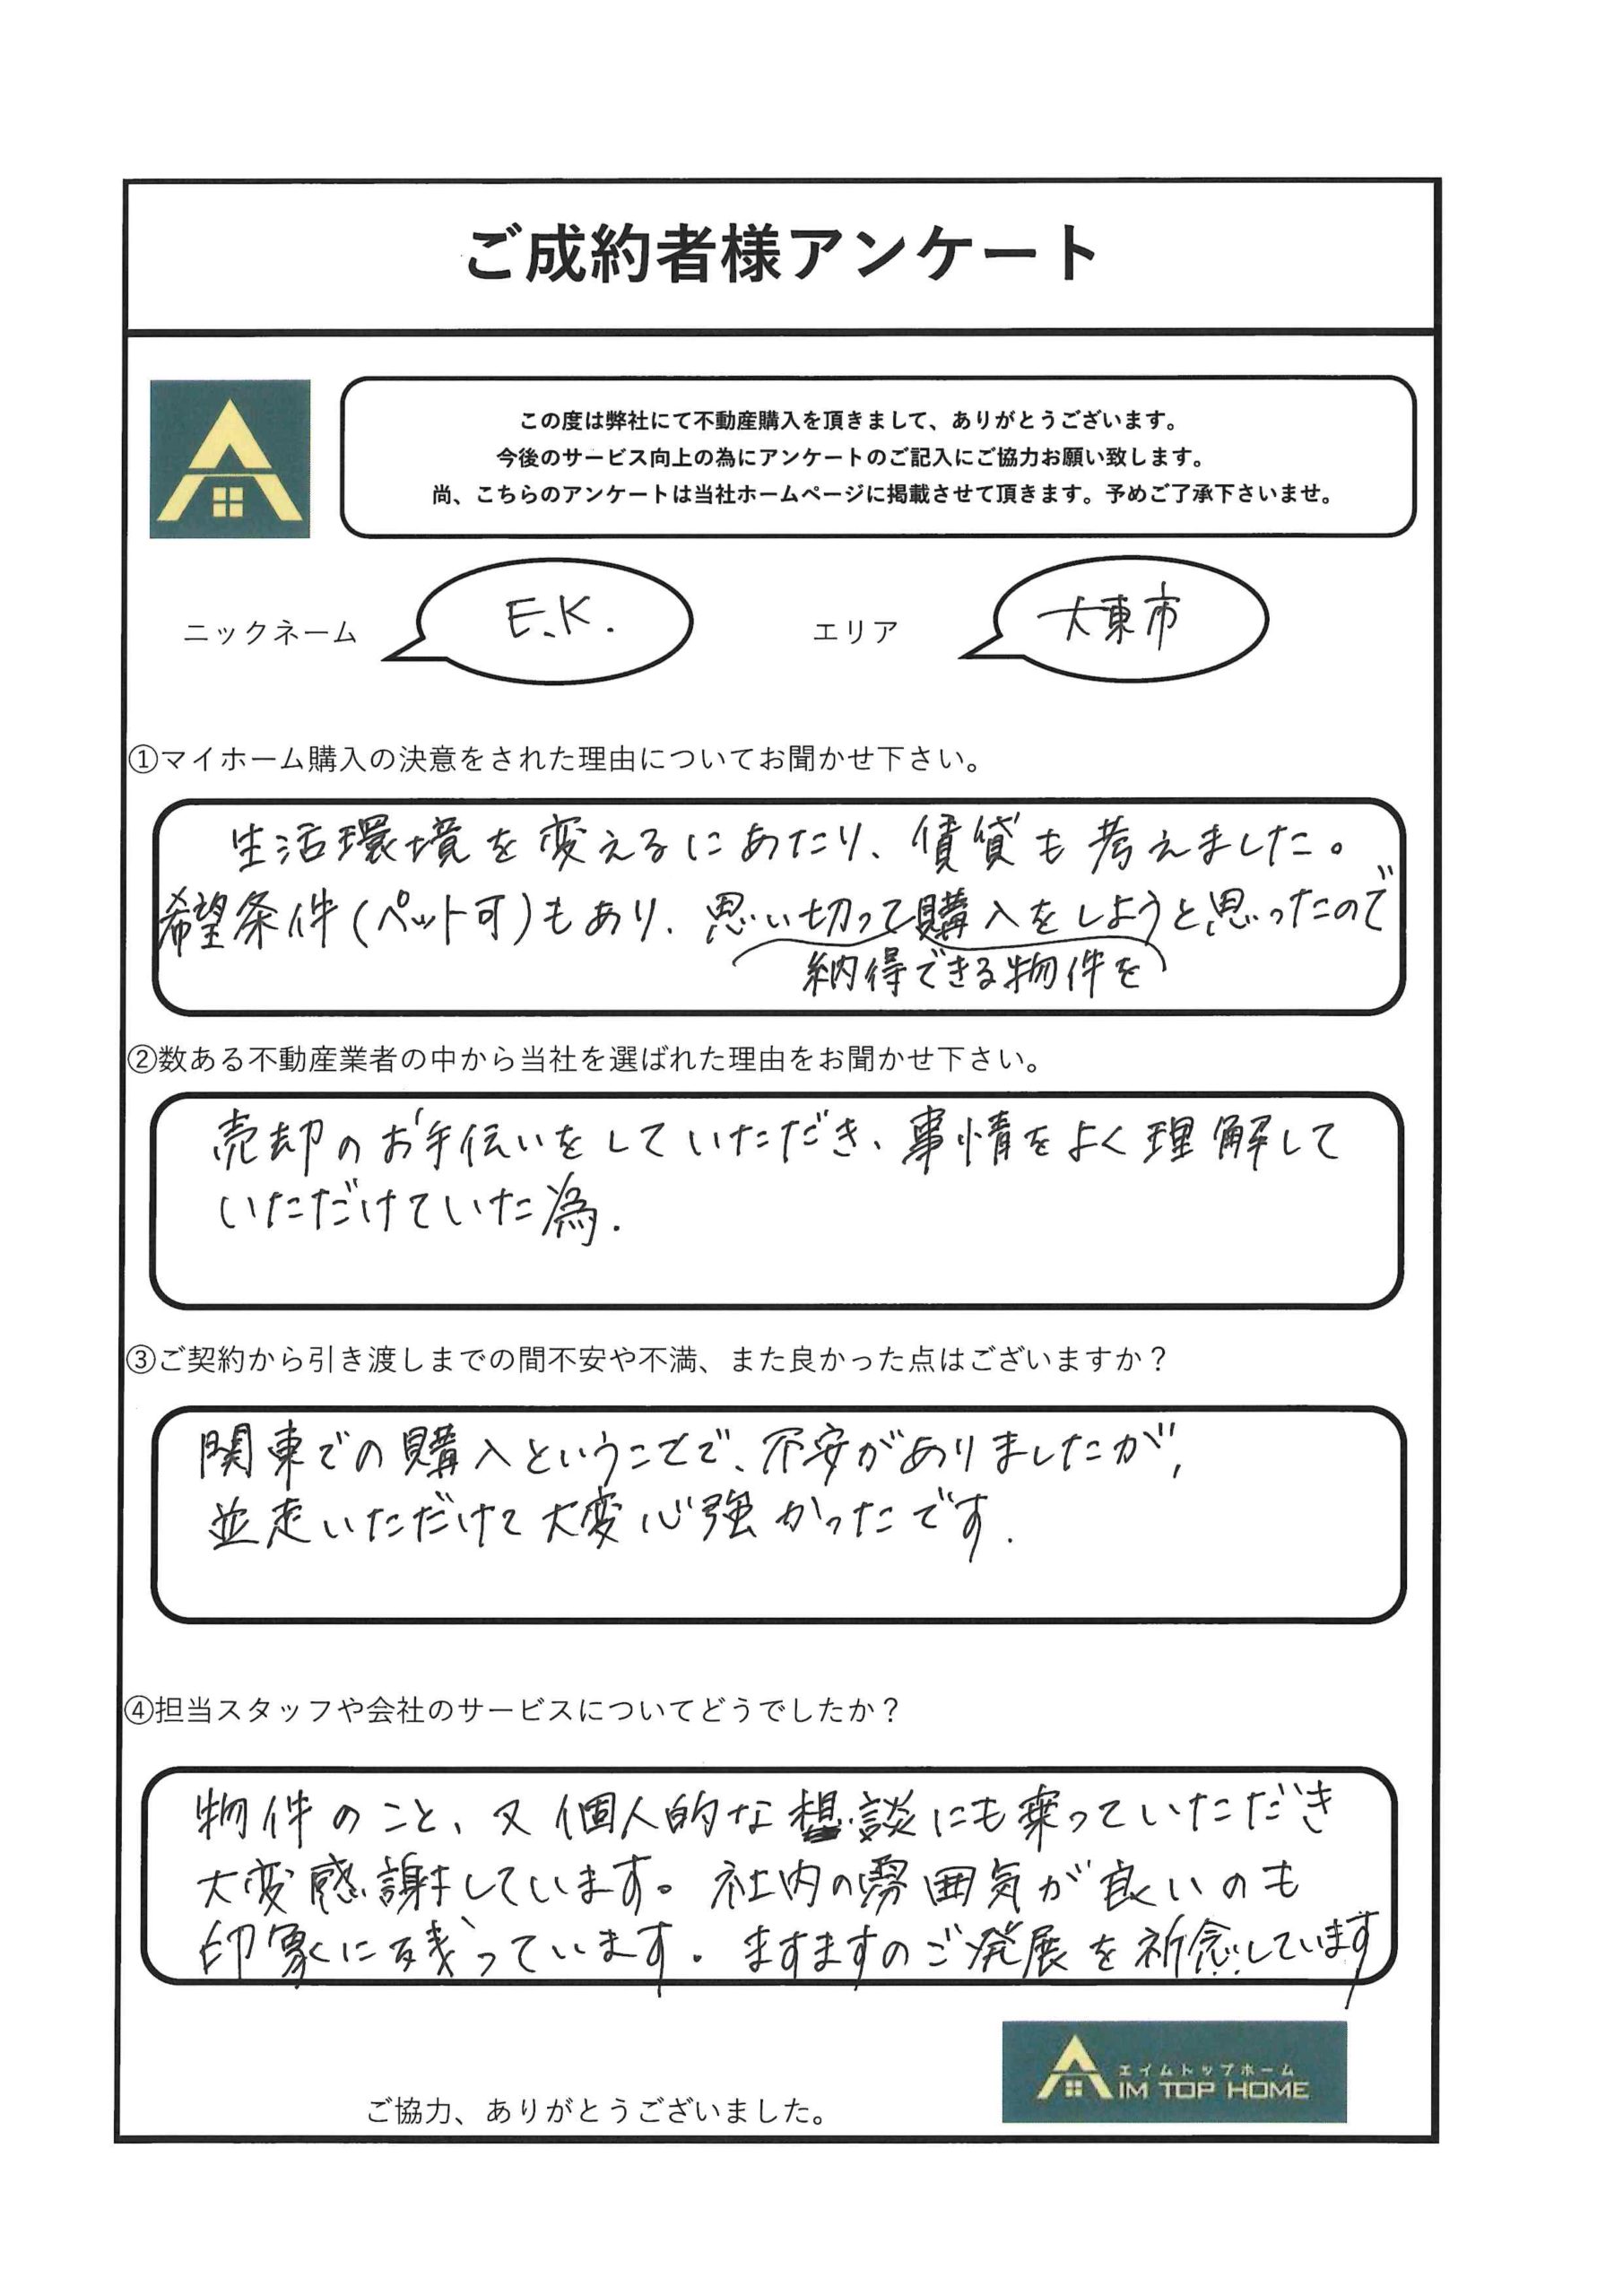 ご成約者様アンケート
この度は弊社にて不動産購入を頂きまして、ありがとうございます。
今後のサービス向上の為にアンケートのご記入にご協力お願い致します。
尚、こちらのアンケートは当社ホームページに掲載させて頂きます。予めご了承下さいませ。
ニックネーム E.K. エリア 大東市
①マイホーム購入の決意をされた理由についてお聞かせ下さい。
生活環境を変えるにあたり、賃貸も考えました。
希望条件(ペット可)もあり、思い切って購入をしようと思ったので
納得できる物件を
②数ある不動産業者の中から当社を選ばれた理由をお聞かせ下さい。
売却のお手伝いをしていただき、事情をよく理解して
いただけていた為.
③ご契約から引き渡しまでの間不安や不満、また良かった点はございますか？
関東での購入ということで、不安がありましたが、
並走いただけて大変心強かったです.
④担当スタッフや会社のサービスについてどうでしたか？
物件のこと、又個人的な相談にも乗っていただき
大変感謝しています。社内の雰囲気が良いのも
印象に残っています. ますますのご発展を祈念しています
エイムトップホーム
AIM TOP HOME
ご協力、ありがとうございました。